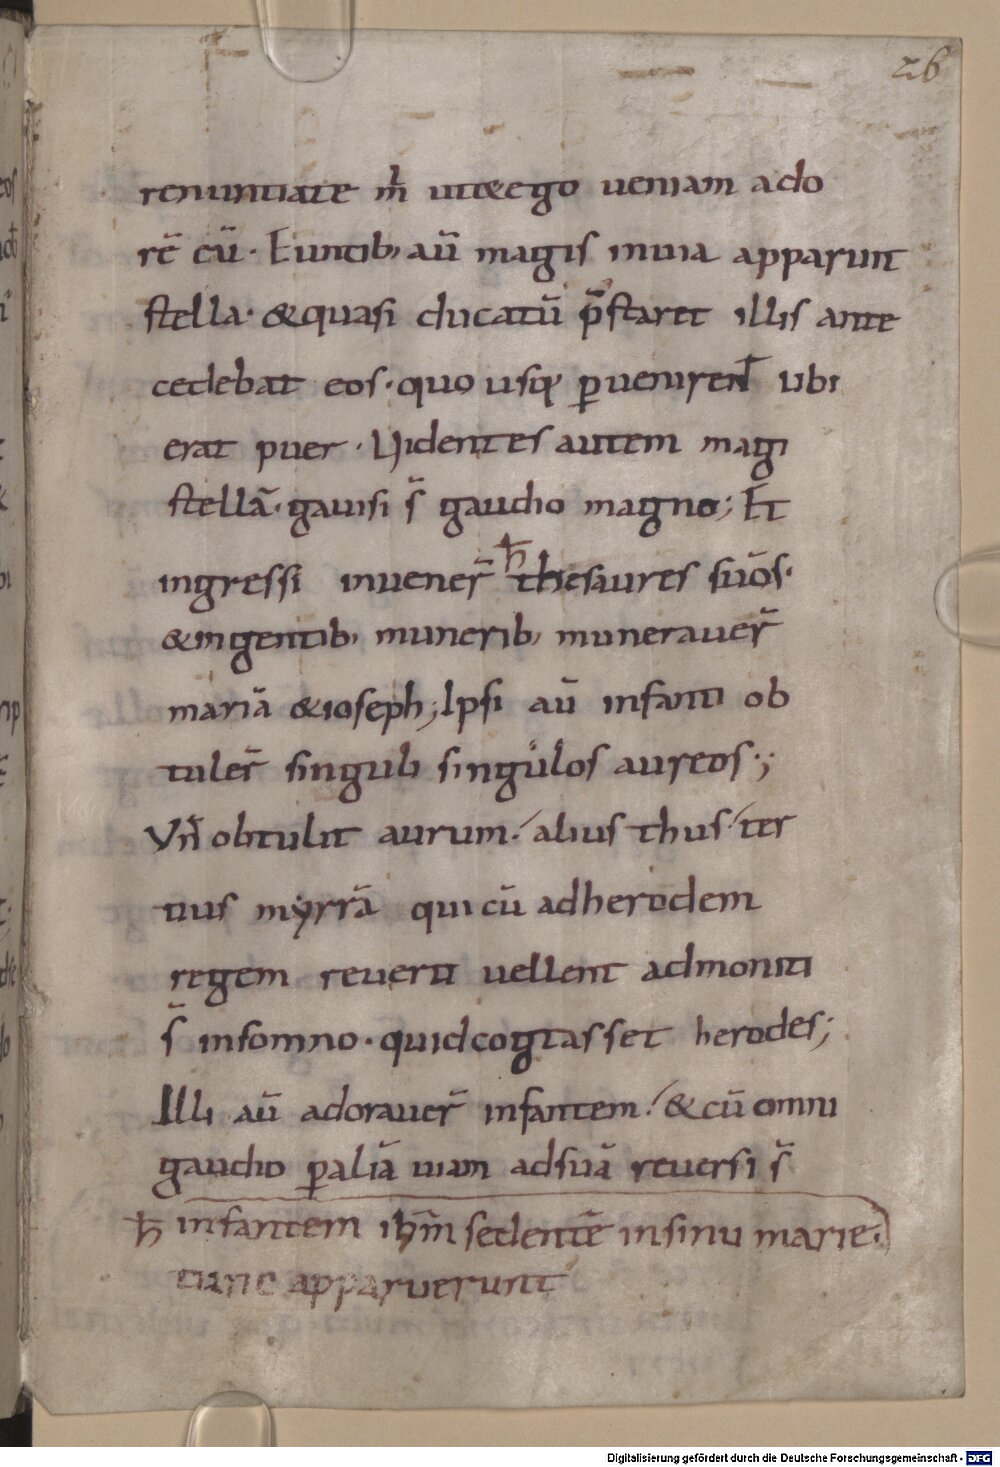 26
renuntiate m̅ ut&ego ueniam ado
rē eū. Euntib; aū magis inuia apparuit
stella. &quasi ducatū p̄staret illis ante
cedebat eos. quo usq; peruenirent ubi
erat puer. Uidentes autem magi
stellā. gauisi s̄ gaudio magno; Et
ingressi inuener̄ ħ thesaures suōs.
&ingentib; munerib; munerauer̄
mariā &ioseph; Ipsi aū infanti ob
tuler̄ singuli singulos aureos.;
Vn̄ obtulit aurum. alius thus. ter
tius myrrā qui cū adherodem
regem reuerti uellent admoniti
s̄ insomno. quidcogtasset herodes;
Illi aū adorauer̄ infantem. &cū omni
gaudio ꝑaliā uiam adsuā reuersi s̄
ħ infantem ihm̄ sedentē insinu marie.
tunc apparuerunt
Digitalisierung gefördert durch die Deutsche Forschungsgemeinschaft - DFG